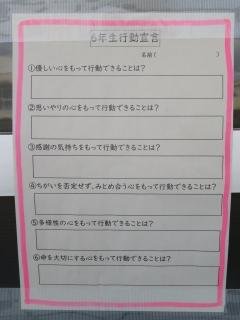 6年生行動宣言
名前(　　　　　)
①優しい心をもって行動できることは?
②思いやりの心をもって行動できることは?
③感謝の気持ちをもって行動できることは?
④ちがいを否定せず、みとめ合う心をもって行動できることは?
⑤多様性の心をもって行動できることは?
⑥命を大切にする心をもって行動できることは?